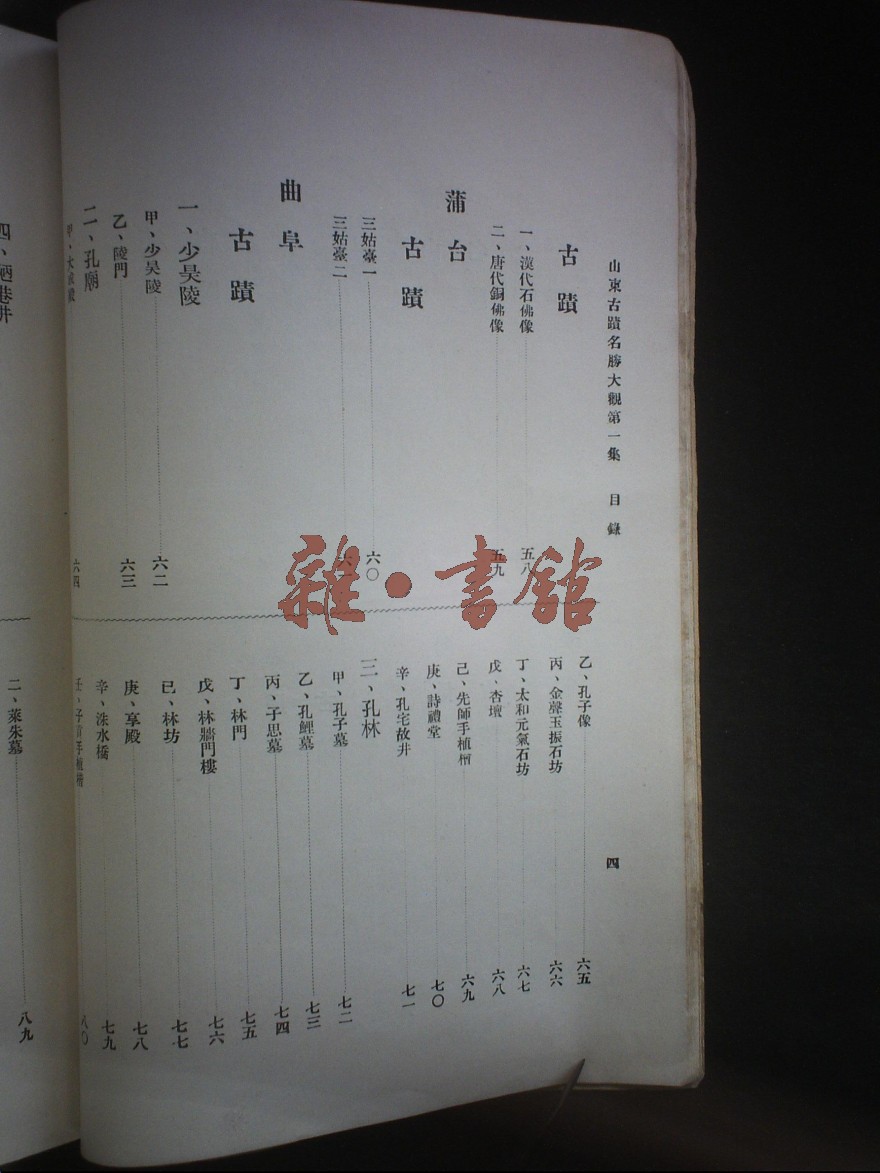 山東古蹟名勝大觀第一集 目錄 四
古蹟
一、漢代石佛像 五八
二、唐代銅佛像 五九
蒲台
古蹟
三姑臺一 六〇
三姑臺二
曲阜
古蹟
一、少昊陵
甲、少昊陵 六二
乙、陵門 六三
二、孔廟
甲、大成殿 六四
乙、孔子像 六五
丙、金聲玉振石坊 六六
丁、太和元氣石坊 六七
戊、杏壇 六八
己、先師手植檜 六九
庚、詩禮堂 七〇
辛、孔宅故井 七一
三、孔林
甲、孔子墓 七二
乙、孔鯉墓 七三
丙、子思墓 七四
丁、林門 七五
戊、林牆門樓 七六
已、林坊 七七
庚、享殿 七八
辛、洙水橋 七九
壬、子貢手植楷 八〇
四、陋巷井
二、萊朱墓 八九
雜·書館